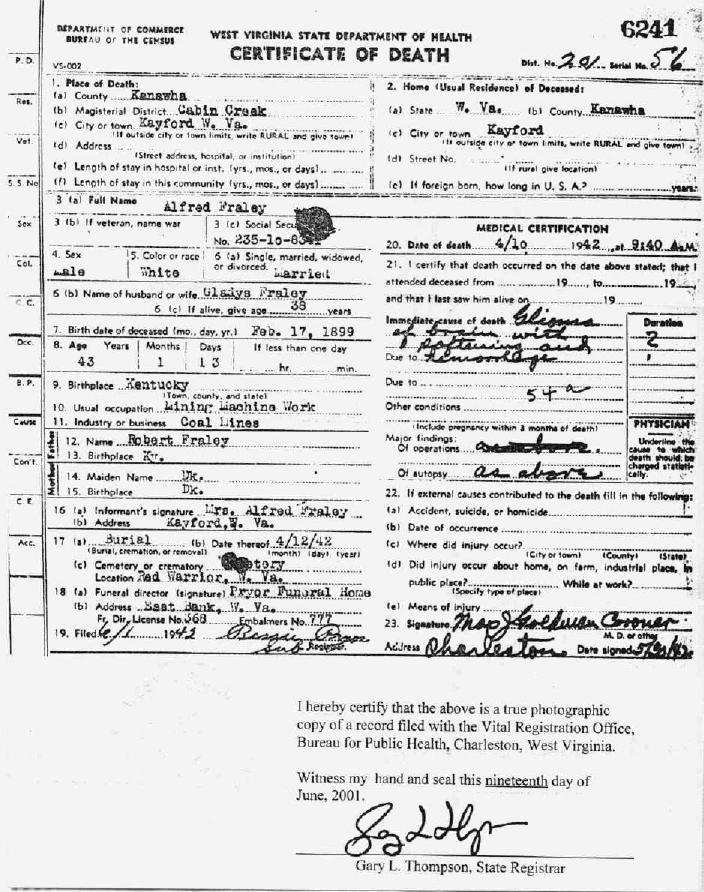 6241
DEPARTMENT OF COMMERCE
BUREAU OF THE CENSUS
WEST VIRGINIA STATE DEPARTMENT OF HEALTH
CERTIFICATE OF DEATH
VS-002
Dist. No. 201 Serial No. 56
P. D.
Res.
Vet.
S. S. No
Sex
Col.
C. C.
Occ.
B. P.
Cause
Con't.
C. E.
Acc.
1. Place of Death:
(a) County Kanawha
(b) Magisterial District Cabin Creek
(c) City or town Kayford W. Va.
(If outside city or town limits, write RURAL and give town)
(d) Address
(Street address, hospital, or institution)
(e) Length of stay in hospital or inst. (yrs., mos., or days)
(f) Length of stay in this community (yrs., mos., or days)
2. Home (Usual Residence) of Deceased:
(a) State W. Va. (b) County Kanawha
(c) City or town Kayford
(If outside city or town limits, write RURAL and give town)
(d) Street No.
(If rural give location)
(e) If foreign born, how long in U. S. A.? years.
3 (a) Full Name
Alfred Fraley
3 (b) If veteran, name war
3 (c) Social Secu
No. 235-10-8
4. Sex
Male
5. Color or race
White
6 (a) Single, married, widowed,
or divorced. Married
6 (b) Name of husband or wife Gladys Fraley
6 (c) If alive, give age 38 years
7. Birth date of deceased (mo., day, yr.) Feb. 17, 1899
8. Age Years Months Days If less than one day
43 1 13 hr. min.
9. Birthplace Kentucky
(Town, county, and state)
10. Usual occupation Mining Machine Work
11. Industry or business Coal Mines
Father
12. Name Robert Fraley
13. Birthplace Ky.
Mother
14. Maiden Name Dk.
15. Birthplace Dk.
16 (a) Informant's signature Mrs. Alfred Fraley
(b) Address Kayford, W. Va.
17 (a) Burial (b) Date thereof 4/12/42
(Burial, cremation, or removal) (month) (day) (year)
(c) Cemetery or crematory
Location Red Warrior, W. Va.
18 (a) Funeral director (signature) Pryor Funeral Home
(b) Address East Bank, W. Va.
Fr. Dir. License No. 368 Embalmers No. 777
19. Filed 6/1 1942
Sub Registrar
MEDICAL CERTIFICATION
20. Date of death 4/10 1942, at 9:40 A.M.
21. I certify that death occurred on the date above stated; that I
attended deceased from 19 , to 19
and that I last saw him alive on 19
Immediate cause of death Glioma
of brain with
softening and
Due to hemorrhage
Due to
54a
Other conditions
(Include pregnancy within 3 months of death)
Duration
2
Major findings:
Of operations as above.
Of autopsy as above
PHYSICIAN
Underline the
cause to which
death should be
charged statisti-
cally.
22. If external causes contributed to the death fill in the following:
(a) Accident, suicide, or homicide
(b) Date of occurrence
(c) Where did injury occur?
(City or town) (County) (State)
(d) Did injury occur about home, on farm, industrial place, in
public place? While at work?
(Specify type of place)
(e) Means of injury
23. Signature Goldman Coroner
M. D. or other
Address Charleston Date signed
I hereby certify that the above is a true photographic
copy of a record filed with the Vital Registration Office,
Bureau for Public Health, Charleston, West Virginia.
Witness my hand and seal this nineteenth day of
June, 2001.
Gary L. Thompson, State Registrar